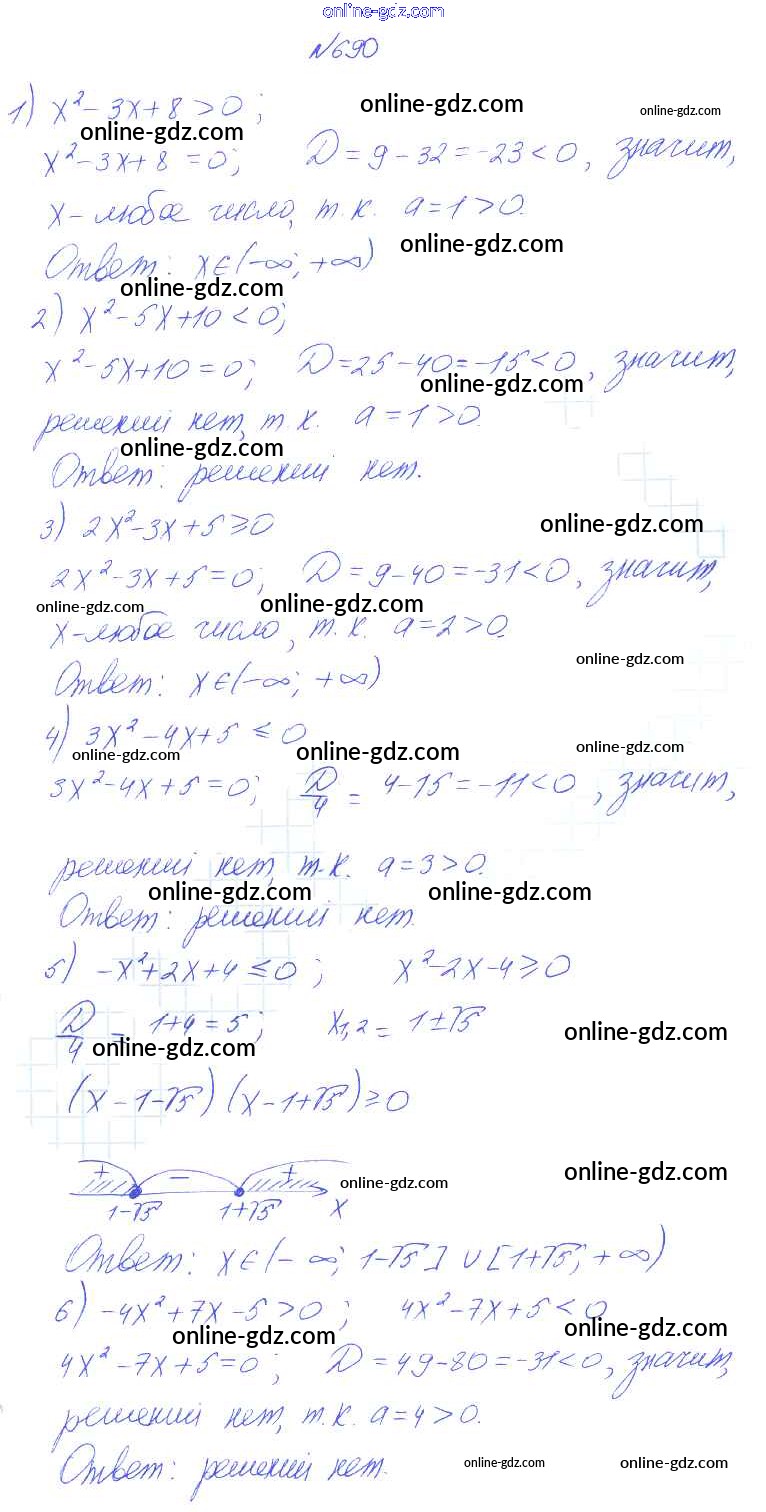 online-gdz.com
№690
1) x² - 3x + 8 > 0 ; online-gdz.com online-gdz.com
online-gdz.com
x² - 3x + 8 = 0; D = 9 - 32 = -23 < 0, значит,
x - любое число, т.к. a = 1 > 0.
online-gdz.com
Ответ: x ∈ (-∞; +∞)
online-gdz.com
2) x² - 5x + 10 < 0;
x² - 5x + 10 = 0; D = 25 - 40 = -15 < 0, значит,
online-gdz.com
решений нет, т.к. a = 1 > 0.
online-gdz.com
Ответ: решений нет.
3) 2x² - 3x + 5 ≥ 0 online-gdz.com
2x² - 3x + 5 = 0; D = 9 - 40 = -31 < 0, значит,
online-gdz.com online-gdz.com
x - любое число, т.к. a = 2 > 0.
online-gdz.com
Ответ: x ∈ (-∞; +∞)
4) 3x² - 4x + 5 ≤ 0
online-gdz.com online-gdz.com online-gdz.com
3x² - 4x + 5 = 0; D/4 = 4 - 15 = -11 < 0, значит,
решений нет, т.к. a = 3 > 0.
online-gdz.com online-gdz.com
Ответ: решений нет.
5) -x² + 2x + 4 ≤ 0 ; x² - 2x - 4 ≥ 0
D/4 = 1 + 4 = 5 ; x₁,₂ = 1 ± √5 online-gdz.com
online-gdz.com
(x - 1 - √5)(x - 1 + √5) ≥ 0
+ - + online-gdz.com online-gdz.com
1-√5 1+√5 x
Ответ: x ∈ (-∞; 1-√5] ∪ [1+√5; +∞)
6) -4x² + 7x - 5 > 0 ; 4x² - 7x + 5 < 0
online-gdz.com online-gdz.com
4x² - 7x + 5 = 0 ; D = 49 - 80 = -31 < 0, значит,
решений нет, т.к. a = 4 > 0.
Ответ: решений нет. online-gdz.com online-gdz.com